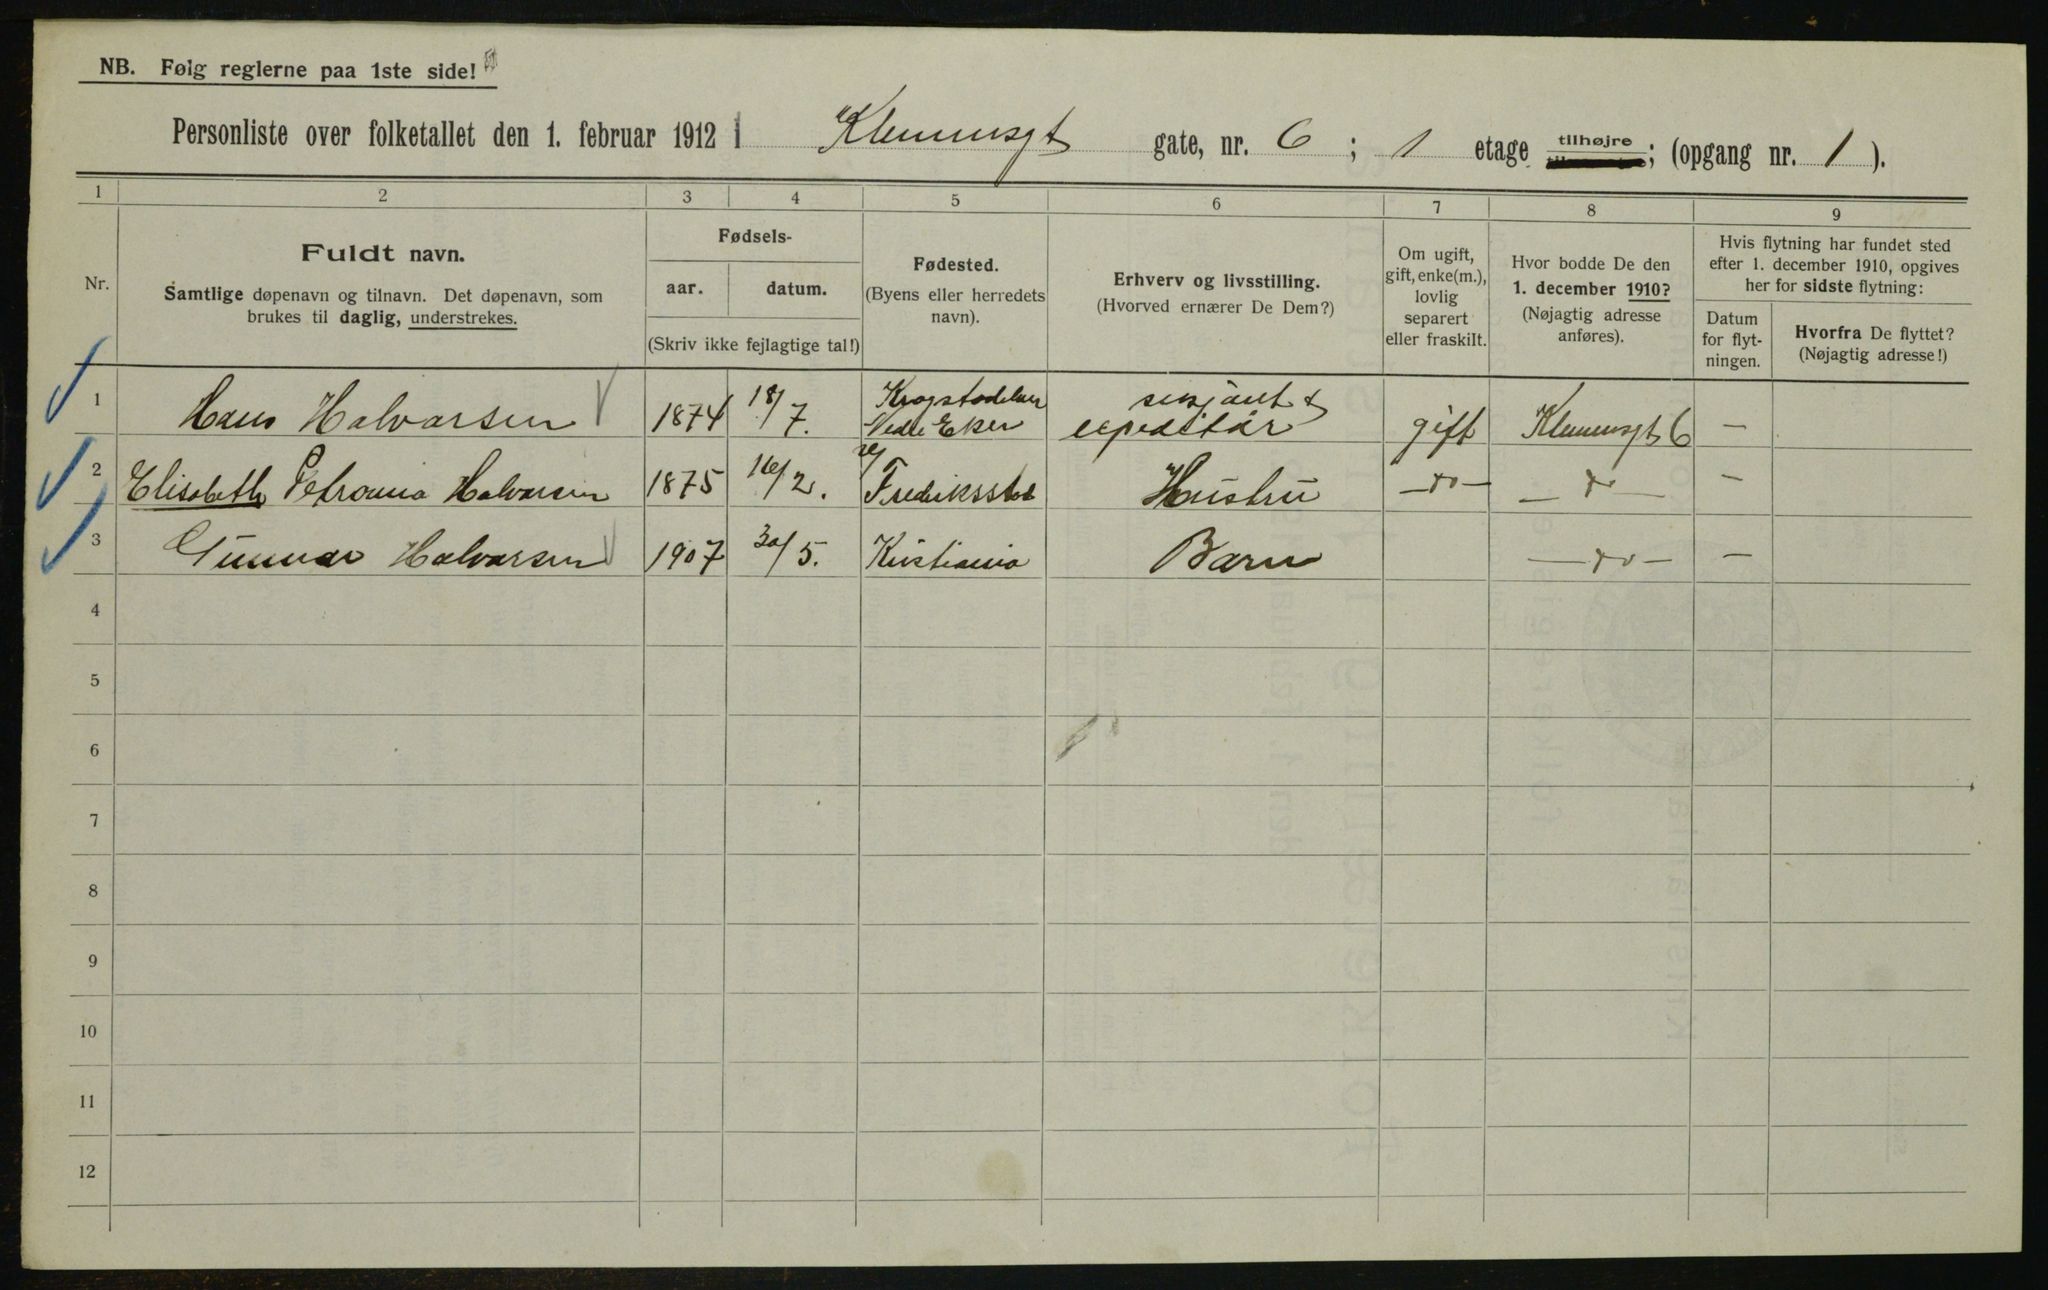 NB. Følg reglerne paa 1ste side!
Personliste over folketallet den 1. februar 1912 i Klemensgt gate, nr. 6 ; 1 etage tilhøjre ; (opgang nr. 1 ).
1 2 3 4 5 6 7 8 9
Nr.
Fuldt navn.
Samtlige døpenavn og tilnavn. Det døpenavn, som
brukes til daglig, understrekes.
Fødsels-
aar. datum.
(Skriv ikke fejlagtige tal!)
Fødested.
(Byens eller herredets
navn).
Erhverv og livsstilling.
(Hvorved ernærer De Dem?)
Om ugift,
gift, enke(m.),
lovlig
separert
eller fraskilt.
Hvor bodde De den
1. december 1910?
(Nøjagtig adresse
anføres).
Hvis flytning har fundet sted
efter 1. december 1910, opgives
her for sidste flytning:
Datum
for flyt-
ningen.
Hvorfra De flyttet?
(Nøjagtig adresse!)
1 Hans Halvorsen 1874 18/7. Nedre Eker gift Klemensgt 6 —
2 Elisabeth Petronia Halvorsen 1875 16/2. Fredriksstad Hustru —do— —do— —
3 Gunnar Halvorsen 1907 30/5. Kristiania Barn —do— —
4
5
6
7
8
9
10
11
12